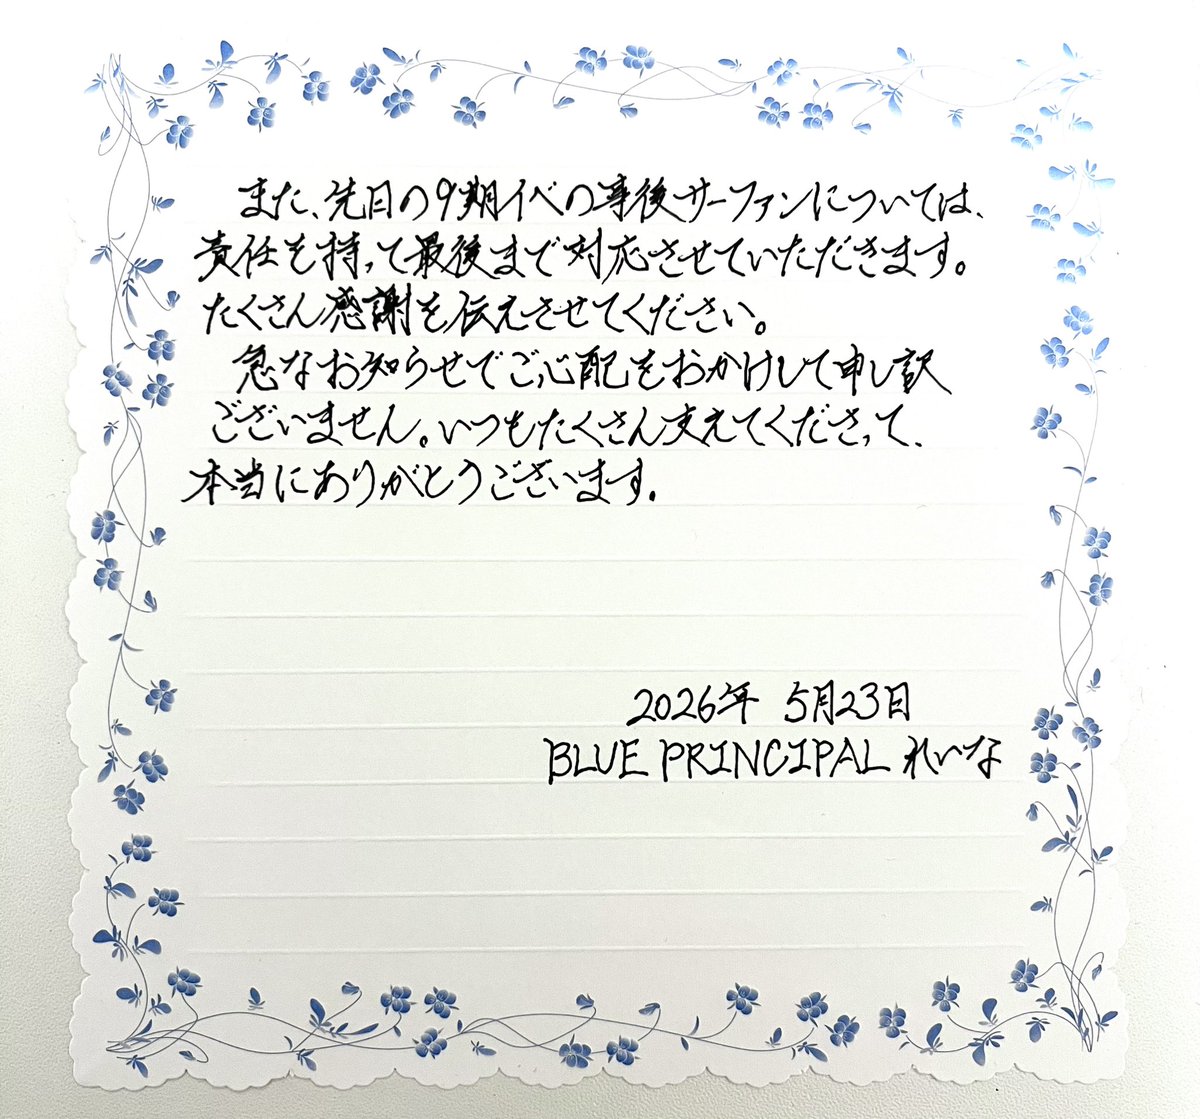 また、先日の9期イベの事後サーファンについては、
責任を持って最後まで対応させていただきます。
たくさん感謝を伝えさせてください。
急なお知らせでご心配をおかけして申し訳
ございません。いつもたくさん支えてくださって、
本当にありがとうございます。
2026年 5月23日
BLUE PRINCIPAL れいな